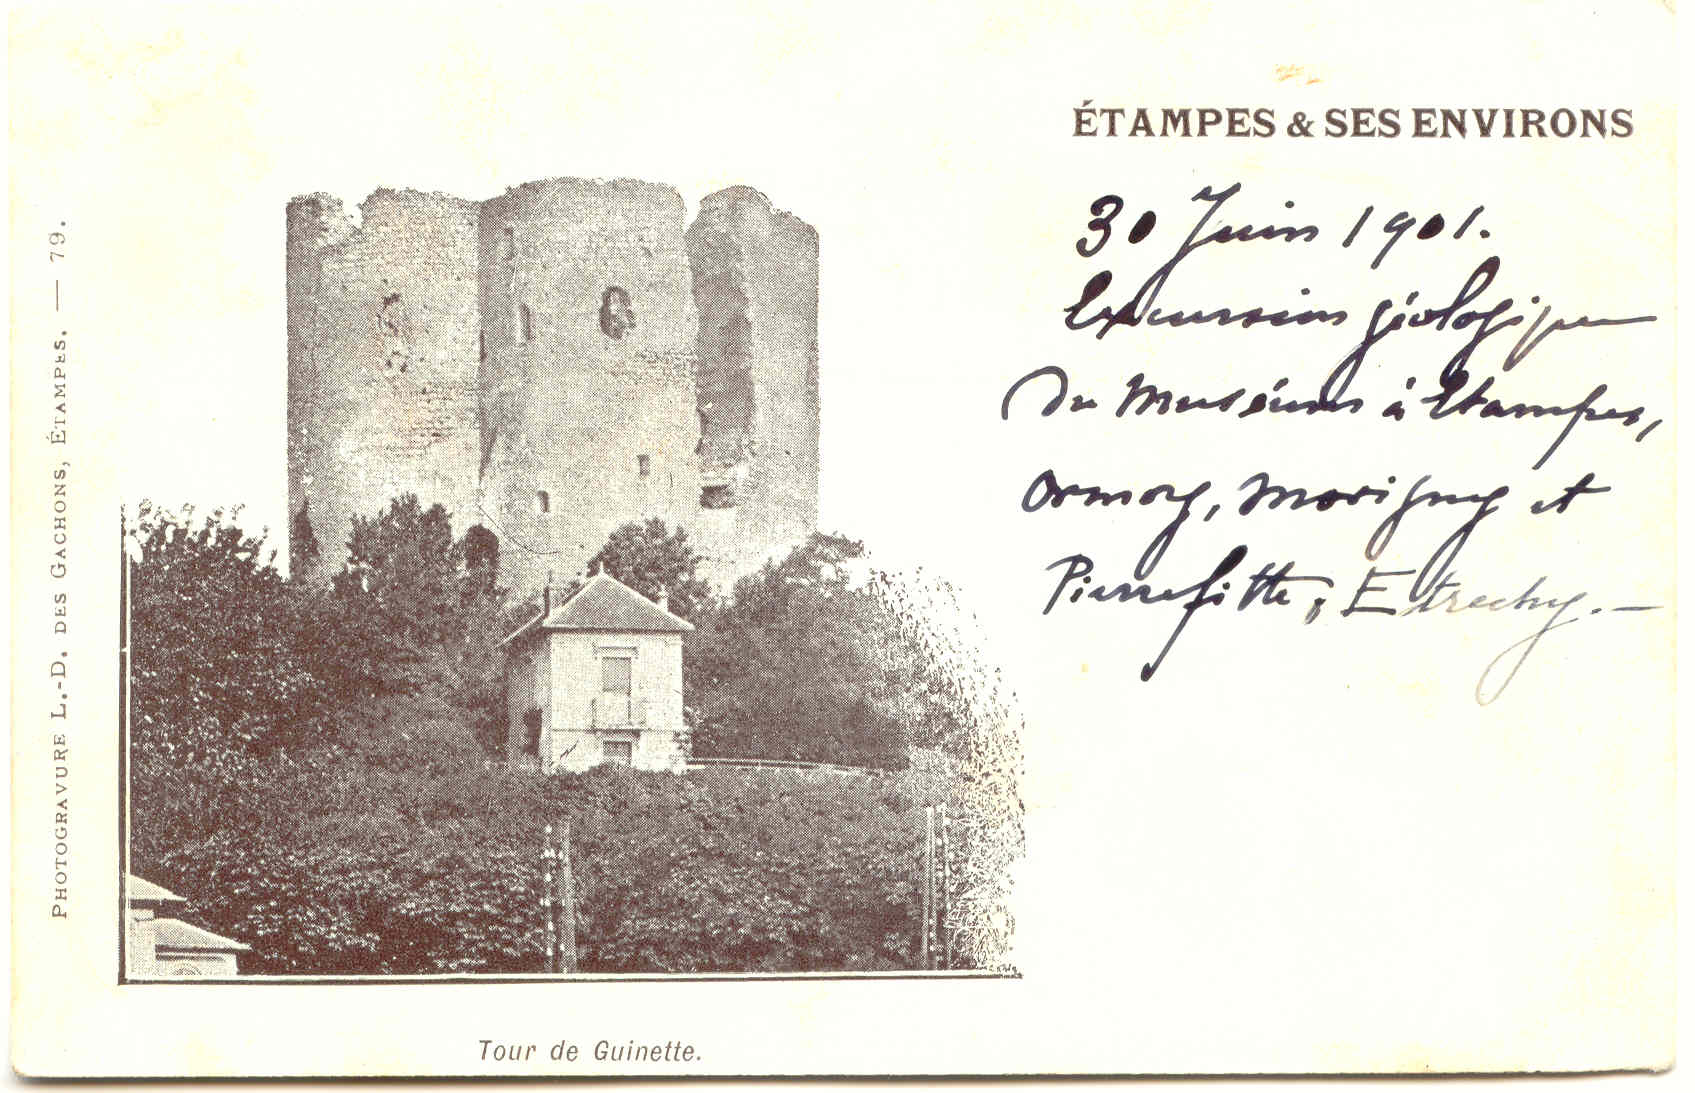 ÉTAMPES & SES ENVIRONS
30 Juin 1901.
Excursion géologique
du Muséum à Etampes,
Ormoy, Morigny et
Pierrefitte, Etrechy. —
PHOTOGRAVURE L.-D. DES GACHONS, ÉTAMPES. — 79.
Tour de Guinette.